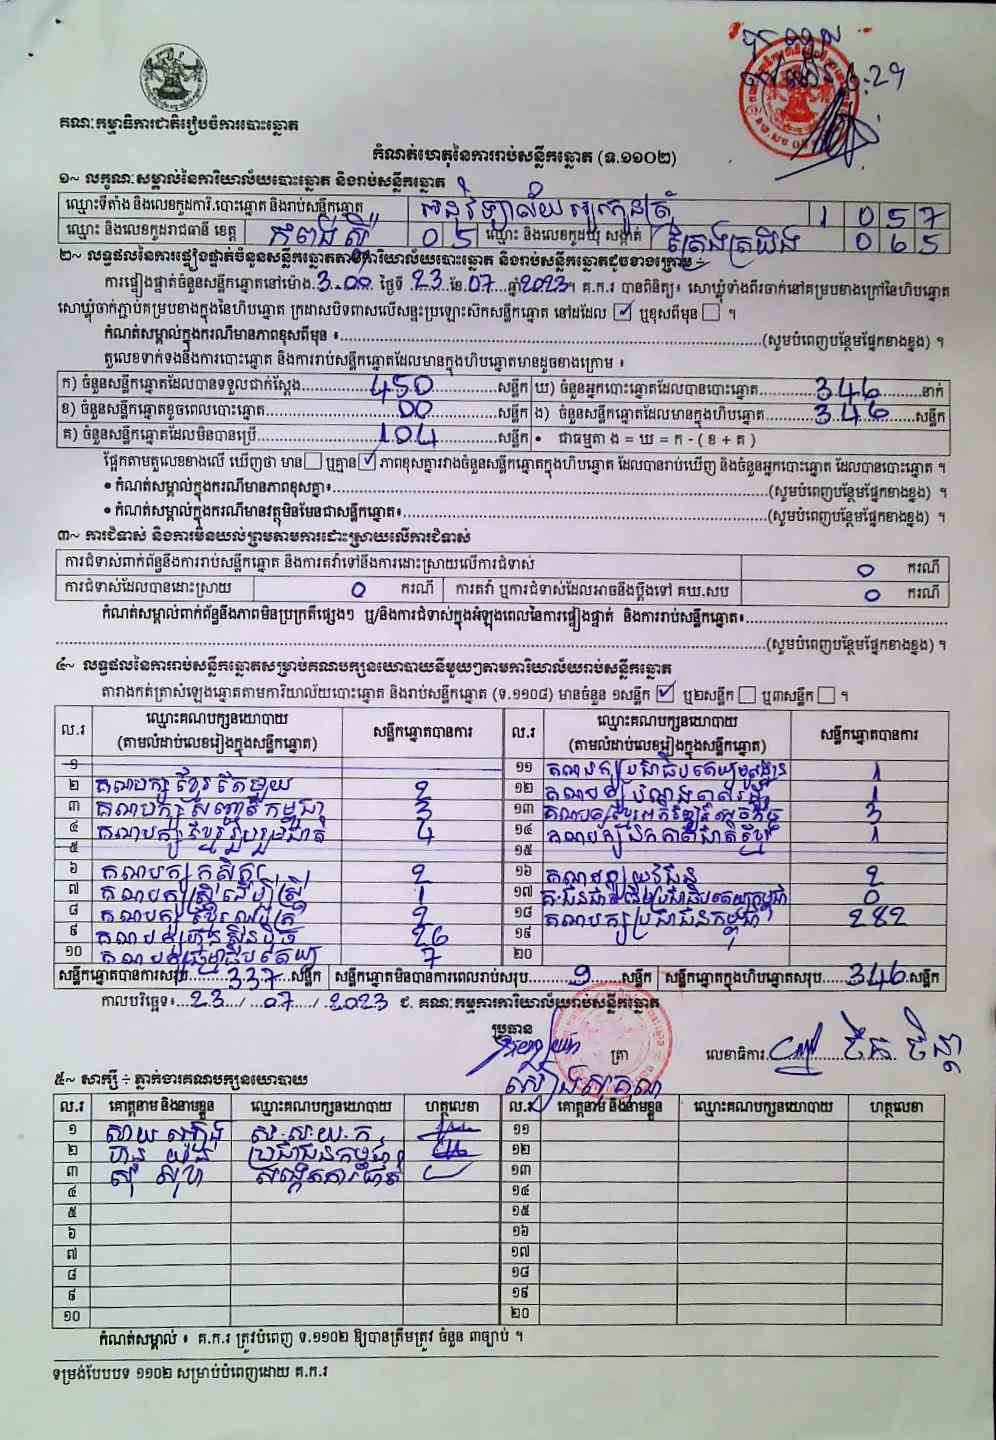 គណៈកម្មាធិការជាតិរៀបចំការបោះឆ្នោត
កំណត់ហេតុនៃការរាប់សន្លឹកឆ្នោត (ទ.១១០២)
១~ លក្ខណៈសម្គាល់នៃការិយាល័យបោះឆ្នោត និងរាប់សន្លឹកឆ្នោត
ឈ្មោះទីតាំង និងលេខកូដការិ.បោះឆ្នោត និងរាប់សន្លឹកឆ្នោត អនុវិទ្យាល័យ 1 0 5 7
ឈ្មោះ និងលេខកូដរាជធានី ខេត្ត កំពង់ស្ពឺ 0 5 ឈ្មោះ និងលេខកូដឃុំ សង្កាត់ ត្រែងត្រយឹង 0 6 5
២~ លទ្ធផលនៃការផ្ទៀងផ្ទាត់ចំនួនសន្លឹកឆ្នោតតាមការិយាល័យបោះឆ្នោត និងរាប់សន្លឹកឆ្នោតដូចខាងក្រោម ÷
ការផ្ទៀងផ្ទាត់ចំនួនសន្លឹកឆ្នោតនៅម៉ោង.3.00 ថ្ងៃទី .23.ខែ.07....ឆ្នាំ2023។ គ.ក.រ បានពិនិត្យ៖ សោឃ្លុំទាំងពីរចាក់នៅគម្របខាងក្រៅនៃហិបឆ្នោត
សោឃ្លុំចាក់ភ្ជាប់គម្របខាងក្នុងនៃហិបឆ្នោត ក្រដាសបិទពាសលើសន្ទះប្រឡោះស៊កសន្លឹកឆ្នោត នៅដដែល ☑ ឬខុសពីមុន ☐ ។
កំណត់សម្គាល់ក្នុងករណីមានភាពខុសពីមុន ៖......(សូមបំពេញបន្ថែមផ្នែកខាងខ្នង) ។
តួលេខទាក់ទងនឹងការបោះឆ្នោត និងការរាប់សន្លឹកឆ្នោតដែលមានក្នុងហិបឆ្នោតមានដូចខាងក្រោម ៖
ក) ចំនួនសន្លឹកឆ្នោតដែលបានទទួលជាក់ស្តែង......450......សន្លឹក ឃ) ចំនួនអ្នកបោះឆ្នោតដែលបានបោះឆ្នោត......346......នាក់
ខ) ចំនួនសន្លឹកឆ្នោតខូចពេលបោះឆ្នោត......00......សន្លឹក ង) ចំនួនសន្លឹកឆ្នោតដែលមានក្នុងហិបឆ្នោត......346......សន្លឹក
គ) ចំនួនសន្លឹកឆ្នោតដែលមិនបានប្រើ......104......សន្លឹក • ជាធម្មតា ង = ឃ = ក - ( ខ + គ )
ផ្អែកតាមតួលេខខាងលើ ឃើញថា មាន☐ ឬគ្មាន☑ ភាពខុសគ្នារវាងចំនួនសន្លឹកឆ្នោតក្នុងហិបឆ្នោត ដែលបានរាប់ឃើញ និងចំនួនអ្នកបោះឆ្នោត ដែលបានបោះឆ្នោត ។
• កំណត់សម្គាល់ក្នុងករណីមានភាពខុសគ្នា៖......(សូមបំពេញបន្ថែមផ្នែកខាងខ្នង) ។
• កំណត់សម្គាល់ក្នុងករណីមានវត្ថុមិនមែនជាសន្លឹកឆ្នោត៖......(សូមបំពេញបន្ថែមផ្នែកខាងខ្នង) ។
៣~ ការជំទាស់ និងការមិនយល់ព្រមតាមការដោះស្រាយលើការជំទាស់
ការជំទាស់ពាក់ព័ន្ធនឹងការរាប់សន្លឹកឆ្នោត និងការតវ៉ាទៅនឹងការដោះស្រាយលើការជំទាស់ 0 ករណី
ការជំទាស់ដែលបានដោះស្រាយ 0 ករណី ការតវ៉ា ឬការជំទាស់ដែលអាចនឹងប្តឹងទៅ គឃ.សប 0 ករណី
កំណត់សម្គាល់ពាក់ព័ន្ធនឹងភាពមិនប្រក្រតីផ្សេងៗ ឬ/និងការជំទាស់ក្នុងអំឡុងពេលនៃការផ្ទៀងផ្ទាត់ និងការរាប់សន្លឹកឆ្នោត៖......
......(សូមបំពេញបន្ថែមផ្នែកខាងខ្នង) ។
៤~ លទ្ធផលនៃការរាប់សន្លឹកឆ្នោតសម្រាប់គណបក្សនយោបាយនីមួយៗតាមការិយាល័យរាប់សន្លឹកឆ្នោត
តារាងកត់ត្រាសំឡេងឆ្នោតតាមការិយាល័យបោះឆ្នោត និងរាប់សន្លឹកឆ្នោត (ទ.១១០៨) មានចំនួន ១សន្លឹក ☑ ឬ២សន្លឹក ☐ ឬ៣សន្លឹក ☐ ។
ល.រ ឈ្មោះគណបក្សនយោបាយ (តាមលំដាប់លេខរៀងក្នុងសន្លឹកឆ្នោត) សន្លឹកឆ្នោតបានការ ល.រ ឈ្មោះគណបក្សនយោបាយ (តាមលំដាប់លេខរៀងក្នុងសន្លឹកឆ្នោត) សន្លឹកឆ្នោតបានការ
១ ១១ គណបក្សប្រជាធិបតេយ្យមូលដ្ឋាន 1
២ គណបក្សខ្មែរតែមួយ 2 ១២ គណបក្ស 1
៣ គណបក្សសញ្ជាតិកម្ពុជា 3 ១៣ 3
៤ គណបក្សខ្មែររួបរួមជាតិ 4 ១៤ គណបក្សឯកភាពជាតិខ្មែរ 1
៥ ១៥
៦ គណបក្សកសិករ 2 ១៦ គណបក្សយុវជន 2
៧ គណបក្សស្ត្រីដើម្បីស្ត្រី 1 ១៧ 0
៨ គណបក្ស 2 ១៨ គណបក្សប្រជាជនកម្ពុជា 282
៩ គណបក្សហ្វ៊ុនស៊ិនប៉ិច 26 ១៩
១០ គណបក្ស 7 ២០
សន្លឹកឆ្នោតបានការសរុប......337......សន្លឹក សន្លឹកឆ្នោតមិនបានការពេលរាប់សរុប......9......សន្លឹក សន្លឹកឆ្នោតក្នុងហិបឆ្នោតសរុប...346.សន្លឹក
កាលបរិច្ឆេទ៖...23.../...07.../.2023 ជ. គណៈកម្មការការិយាល័យរាប់សន្លឹកឆ្នោត
ប្រធាន
ត្រា លេខាធិការ
៥~ សាក្សី ÷ ភ្នាក់ងារគណបក្សនយោបាយ
ល.រ គោត្តនាម និងនាមខ្លួន ឈ្មោះគណបក្សនយោបាយ ហត្ថលេខា ល.រ គោត្តនាម និងនាមខ្លួន ឈ្មោះគណបក្សនយោបាយ ហត្ថលេខា
១ ស.ស.យ.ក ១១
២ ប្រជាជនកម្ពុជា ១២
៣ ១៣
៤ ១៤
៥ ១៥
៦ ១៦
៧ ១៧
៨ ១៨
៩ ១៩
១០ ២០
កំណត់សម្គាល់ ៖ គ.ក.រ ត្រូវបំពេញ ទ.១១០២ ឱ្យបានត្រឹមត្រូវ ចំនួន ៣ច្បាប់ ។
ទម្រង់បែបបទ ១១០២ សម្រាប់បំពេញដោយ គ.ក.រ